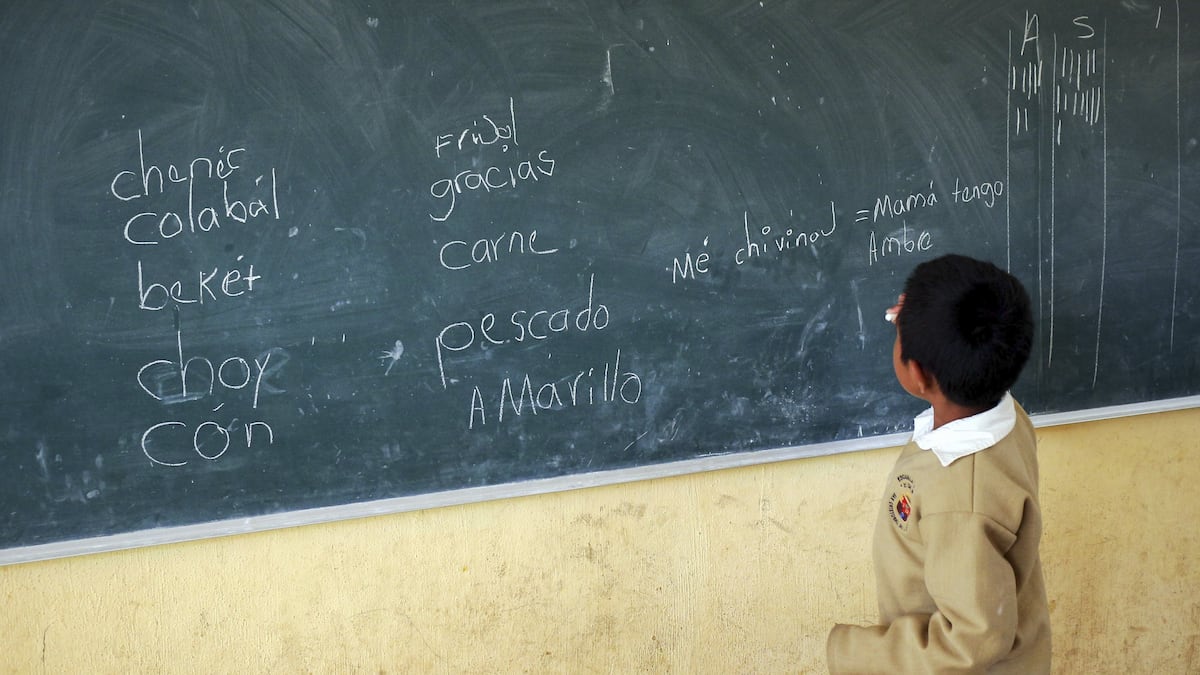 chenéc
colabál
bekét
choy
cón
Frijol
gracias
carne
pescado
AMArillo
Mé chivinaJ = Mamá tengo
Ambre
A S